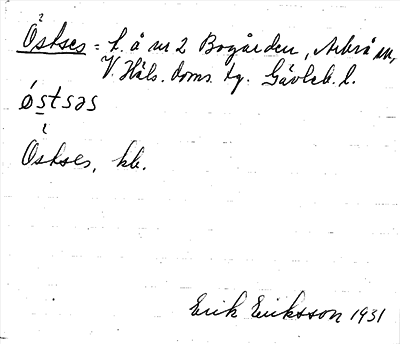 Östses = l. å nr 2 Bogården, Arbrå sn,
V. Häls. doms. tg. Gävleb. l.
ǿstsəs
Östses, kb.
Erik Eriksson 1931